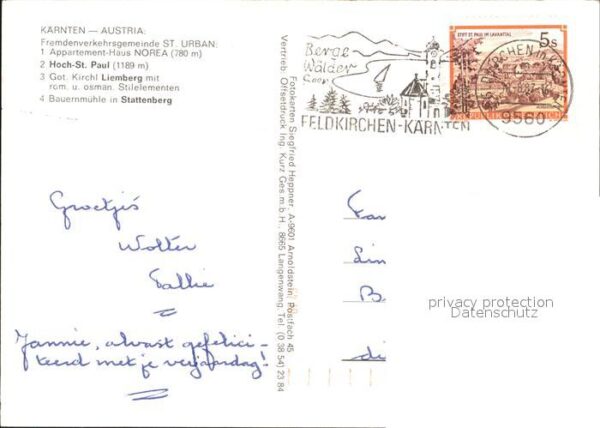 KÄRNTEN — AUSTRIA:
Fremdenverkehrsgemeinde ST. URBAN:
1 Appartement-Haus NOREA (780 m)
2 Hoch-St. Paul (1189 m)
3 Got. Kirchl Liemberg mit
rom. u. osman. Stilelementen
4 Bauernmühle in Stattenberg
Berge
Wälder
Seen
FELDKIRCHEN-KÄRNTEN
STIFT ST. PAUL IM LAVANTTAL
5 S
REPUBLIK ÖSTERREICH
9560
Fotokarten Siegfried Heppner, A-9601 Arnoldstein, Postfach 45
Vertrieb: Offsetdruck Ing. Kurz Ges m b H., 8665 Langenwang, Tel. (0 38 54) 23 84
Groetjes
Wolter
Sallie
Jannie, alvast gefelici-
teerd met je verjaardag!
Fam
Lin
B
di
privacy protection
Datenschutz